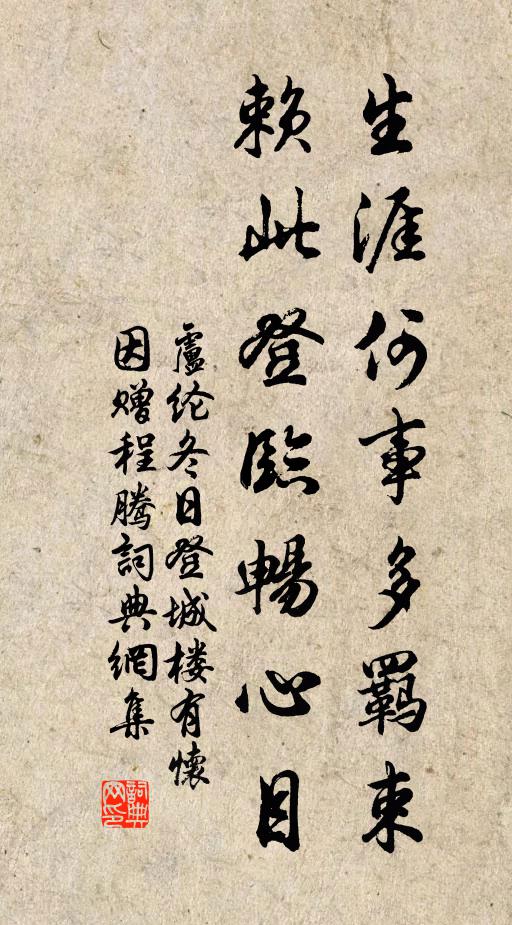 生涯何事多羁束
赖此登临畅心目
盧纶冬日登城楼有懷
因赠程腾詞典網集
詞典网印